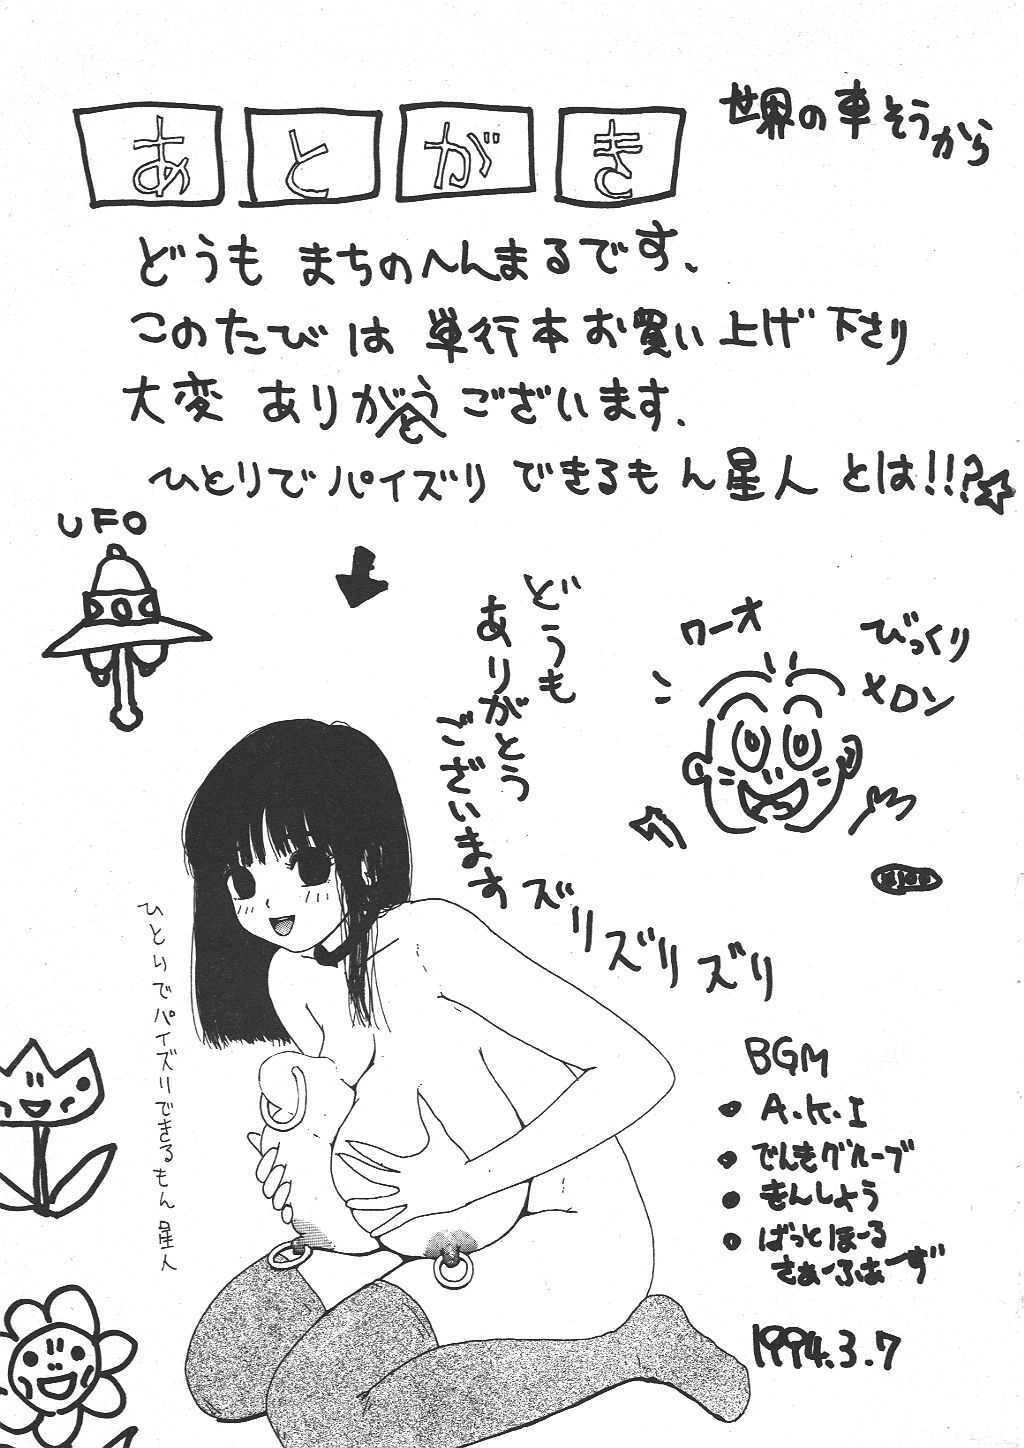 世界の車そうから
あとがき
どうも まちのへんまるです、
このたびは 単行本お買い上げ下さり
大変 ありがとうございます、
ひとりでパイズリ できるもん星人 とは!!?☆
UFO
どうも
ありがとう
ございます
ワーオ
びっくり
メロン
ズリズリズリ
ひとりでパイズリできるもん星人
BGM
・A.K.I
・でんきグループ
・きんしょう
・ばっとほーる
さぁーふぁーず
1994.3.7